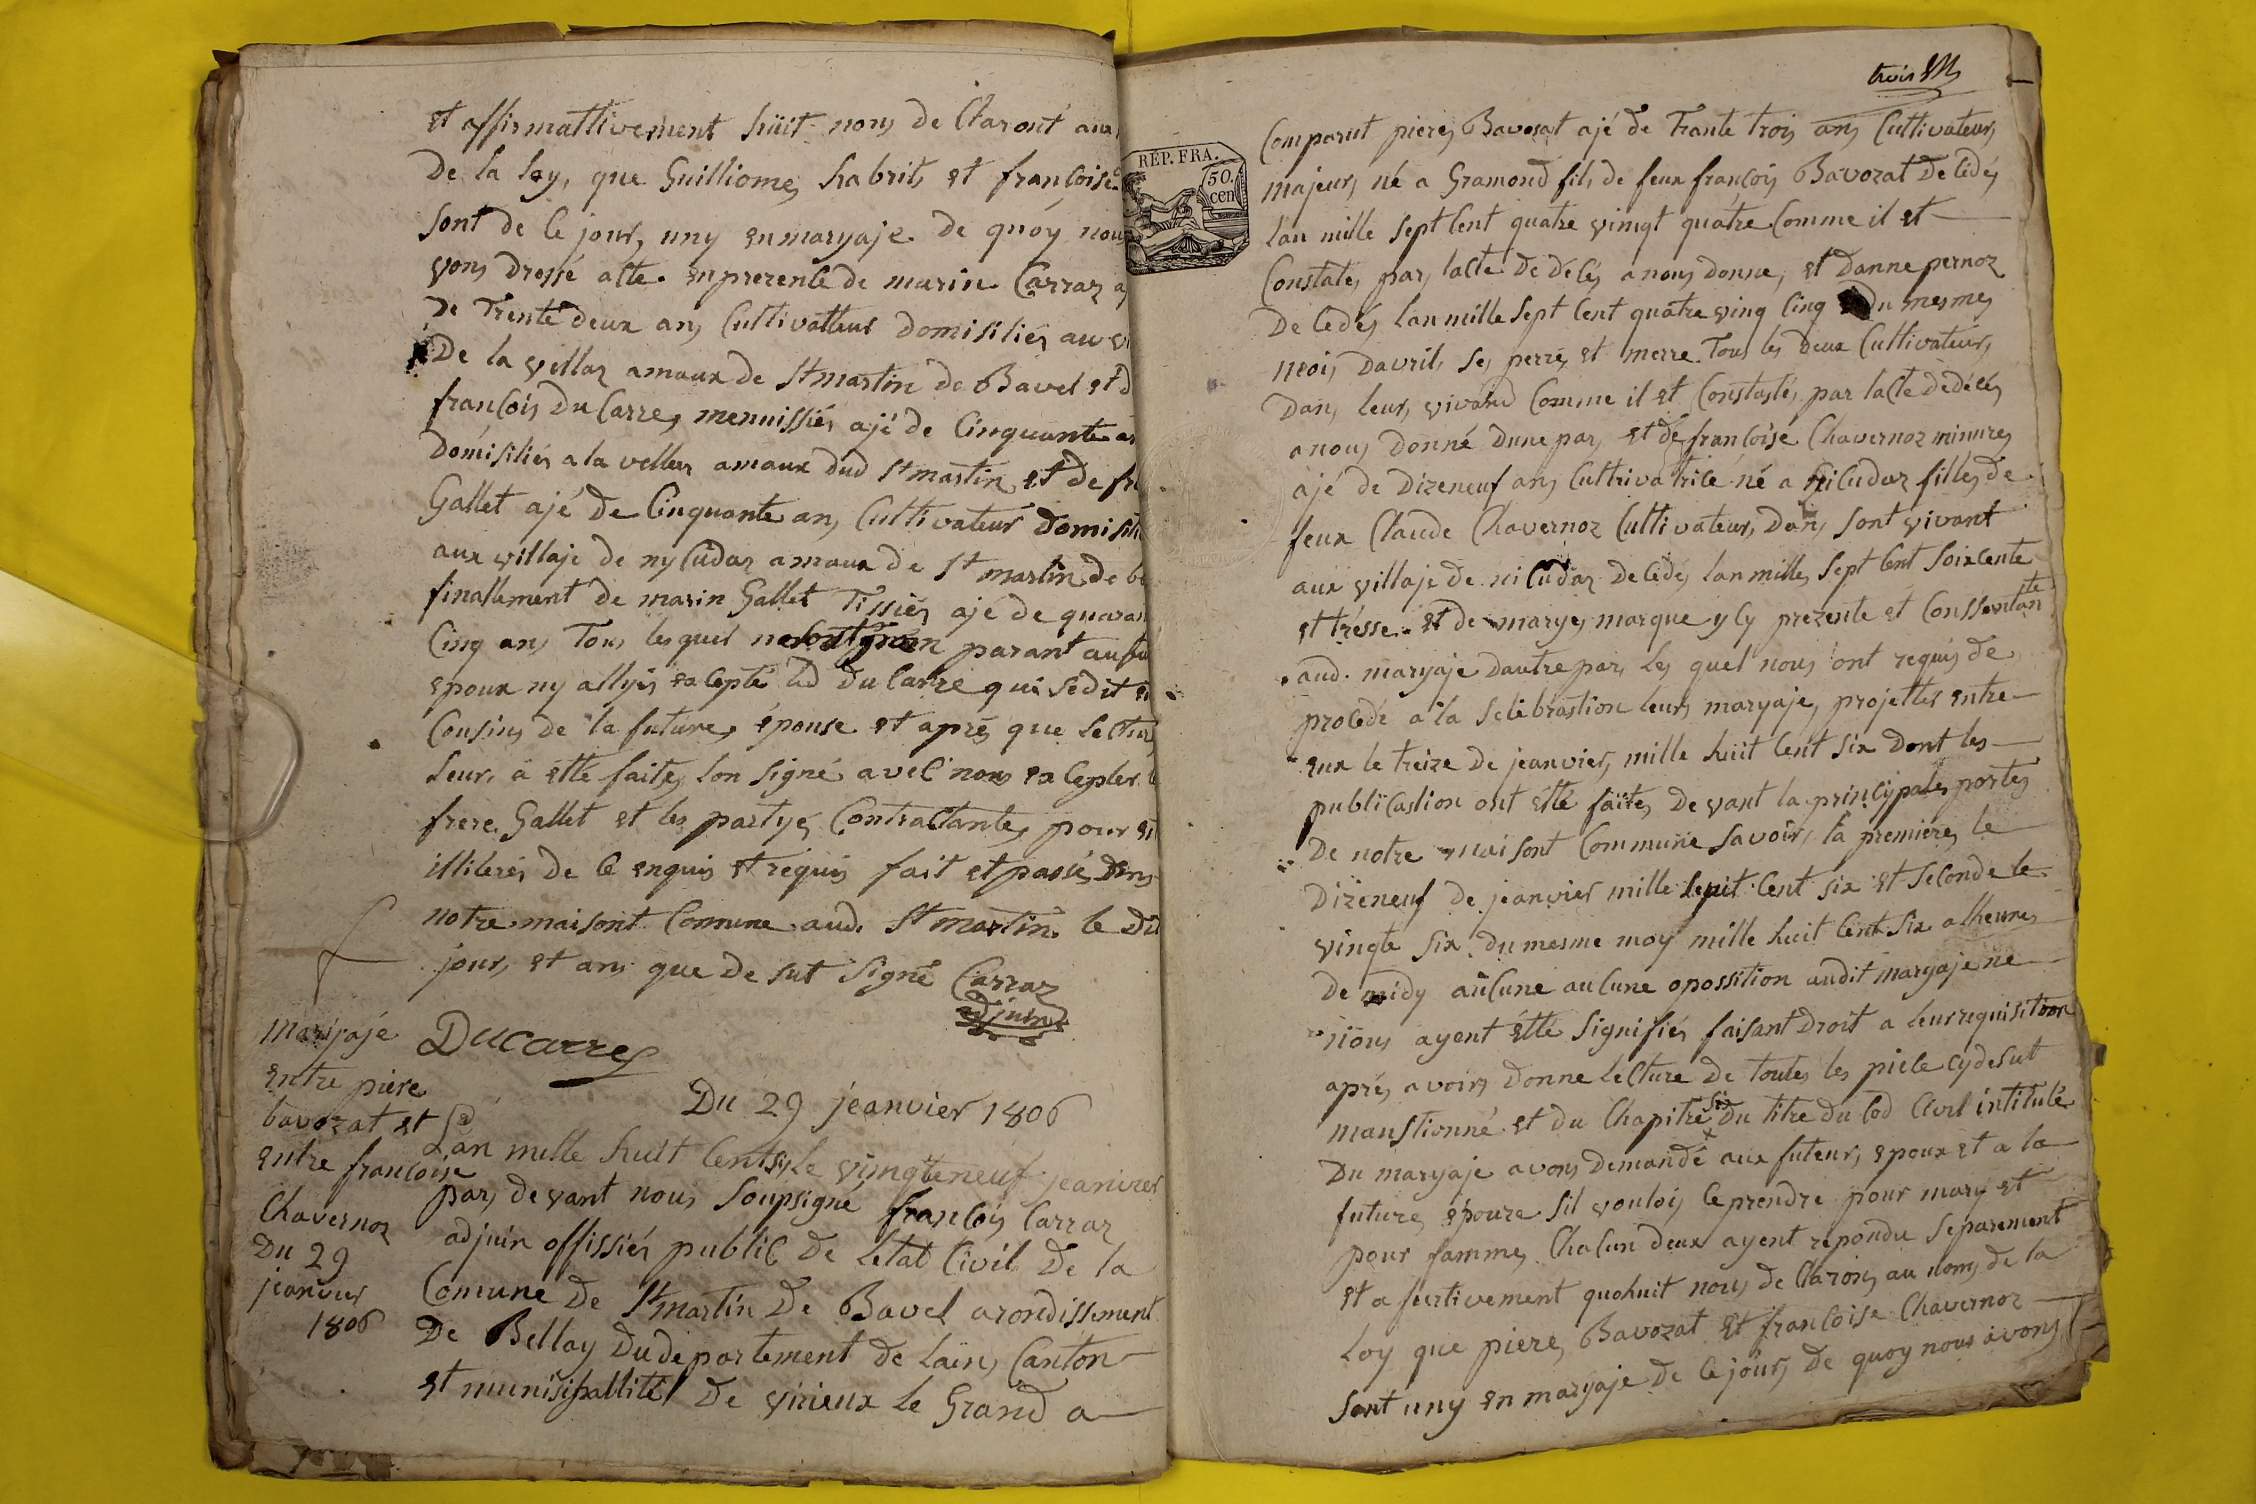 et affirmattivement hüit nous de Claront aux
De la loy, que Guilliome habrit et françoise
sont de ce jour, uny en maryaje de quoy nou
vons dressé acte en prezente de marin Carraz a
De Trente deux ans Cultivatteur Domisiliés au vi
De la villaz amaux de St martin de Bavel et d
françois Du Carre, menuissiés ajé de Cinquante an
Domisiliés a la velleur amaux dud St martin et de fr
Gallet ajé de Cinquante ans Cultivateur domisili
aux villaje de nyCudaz amaux de St martin de b
finallement de marin Gallet Tissiés ajé de quaran
Cinq ans Tous lesquel parant au fu
epoux ny allyés exCepté led DuCarre qui se dit e
Cousins de la future, épouse et aprés que lectur
leur, a etté faite, lon signé avec nous exCepter l
frere Gallet et les partye, Contractante, pour e
illiterés de Ce enquis et requis fait et passés dens
notre maisont Comune aud. St martin le Dit
jour, et ans que de sut signé Carraz
adjuint
DuCarre
maryaje
entre piere
bavozat et
entre françoise
Chavernoz
Du 29
jeanvier
1806
Du 29 jeanvier 1806
Lan mille huit Cents le vingteneuf jeanvier
par, devant nous soupsigné françois Carraz
adjuin offissiés public de letat Civil de la
Comune De St martin De Bavel arondissement
De Bellay Du departement de lain, Canton
et munisipallité De virieux le Grand a
trois
RÉP. FRA.
50.
cen
Comparut piere, Bavozat ajé de Trante trois ans Cultivateur,
majeur, né a Gramond fils de feux françois Bavozat DeCédés
lan mille sept Cent quatre vingt quatre Comme il et
Constatés par, lacte de décés a nous donne, et Danne pernoz
DeCedés lan mille sept Cent quatre ving Cinq Du mesmes
mois Davril, ses perre, et merre Tous les deux Cultivateur,
Dans leur, vivand Comme il et Constastés par lacte dédécés
a nous donné dune par, et de françoise Chavernoz minure,
ajé de Dizeneuf ans Cultrivatrice né a niCudaz filles de
feux Claude Chavernoz Cultivateur, Dans sont vivant
aux villaje de niCudaz DeCédé, lan mille, sept Cent soixcente
et trésse et de marye, marque yCy prezente et Conssentante
aud. maryaje dautre par, les quel nous ont requis de
procédé a la Celébrastion leur, maryaje, projettés entre
eux le treize de jeanvier, mille hüit Cent six dont les
publicastion ont étté faite, devant la principale, porte,
De notre maisont Commune savoir, la premiere, le
Dizeneuf de jeanvier mille huit Cent six et seconde le
vingte six du mesme moy mille huit Cent six alheure,
de midy auCune auCune opossition audit maryaje ne
nous ayent étté signifiés faisant Droit a leur requisition
aprés avoir, donne lecture de toutes les piéce cydesut
manstionné et du Chapitre six Du titre du Cod Civil intitulé
Du maryaje avons demandé aux futeur, epoux et a la
future, épouze sil vouloi, Ce prendre pour mary et
pour famme, Chacun deux ayent répondu séparement
et afeurtivement quohuit nous de Clarons au nom, de la
Loy que piere, Bavozat et françoise Chavernoz
sont uny en maryaje de Ce jour, de quoy nous avons